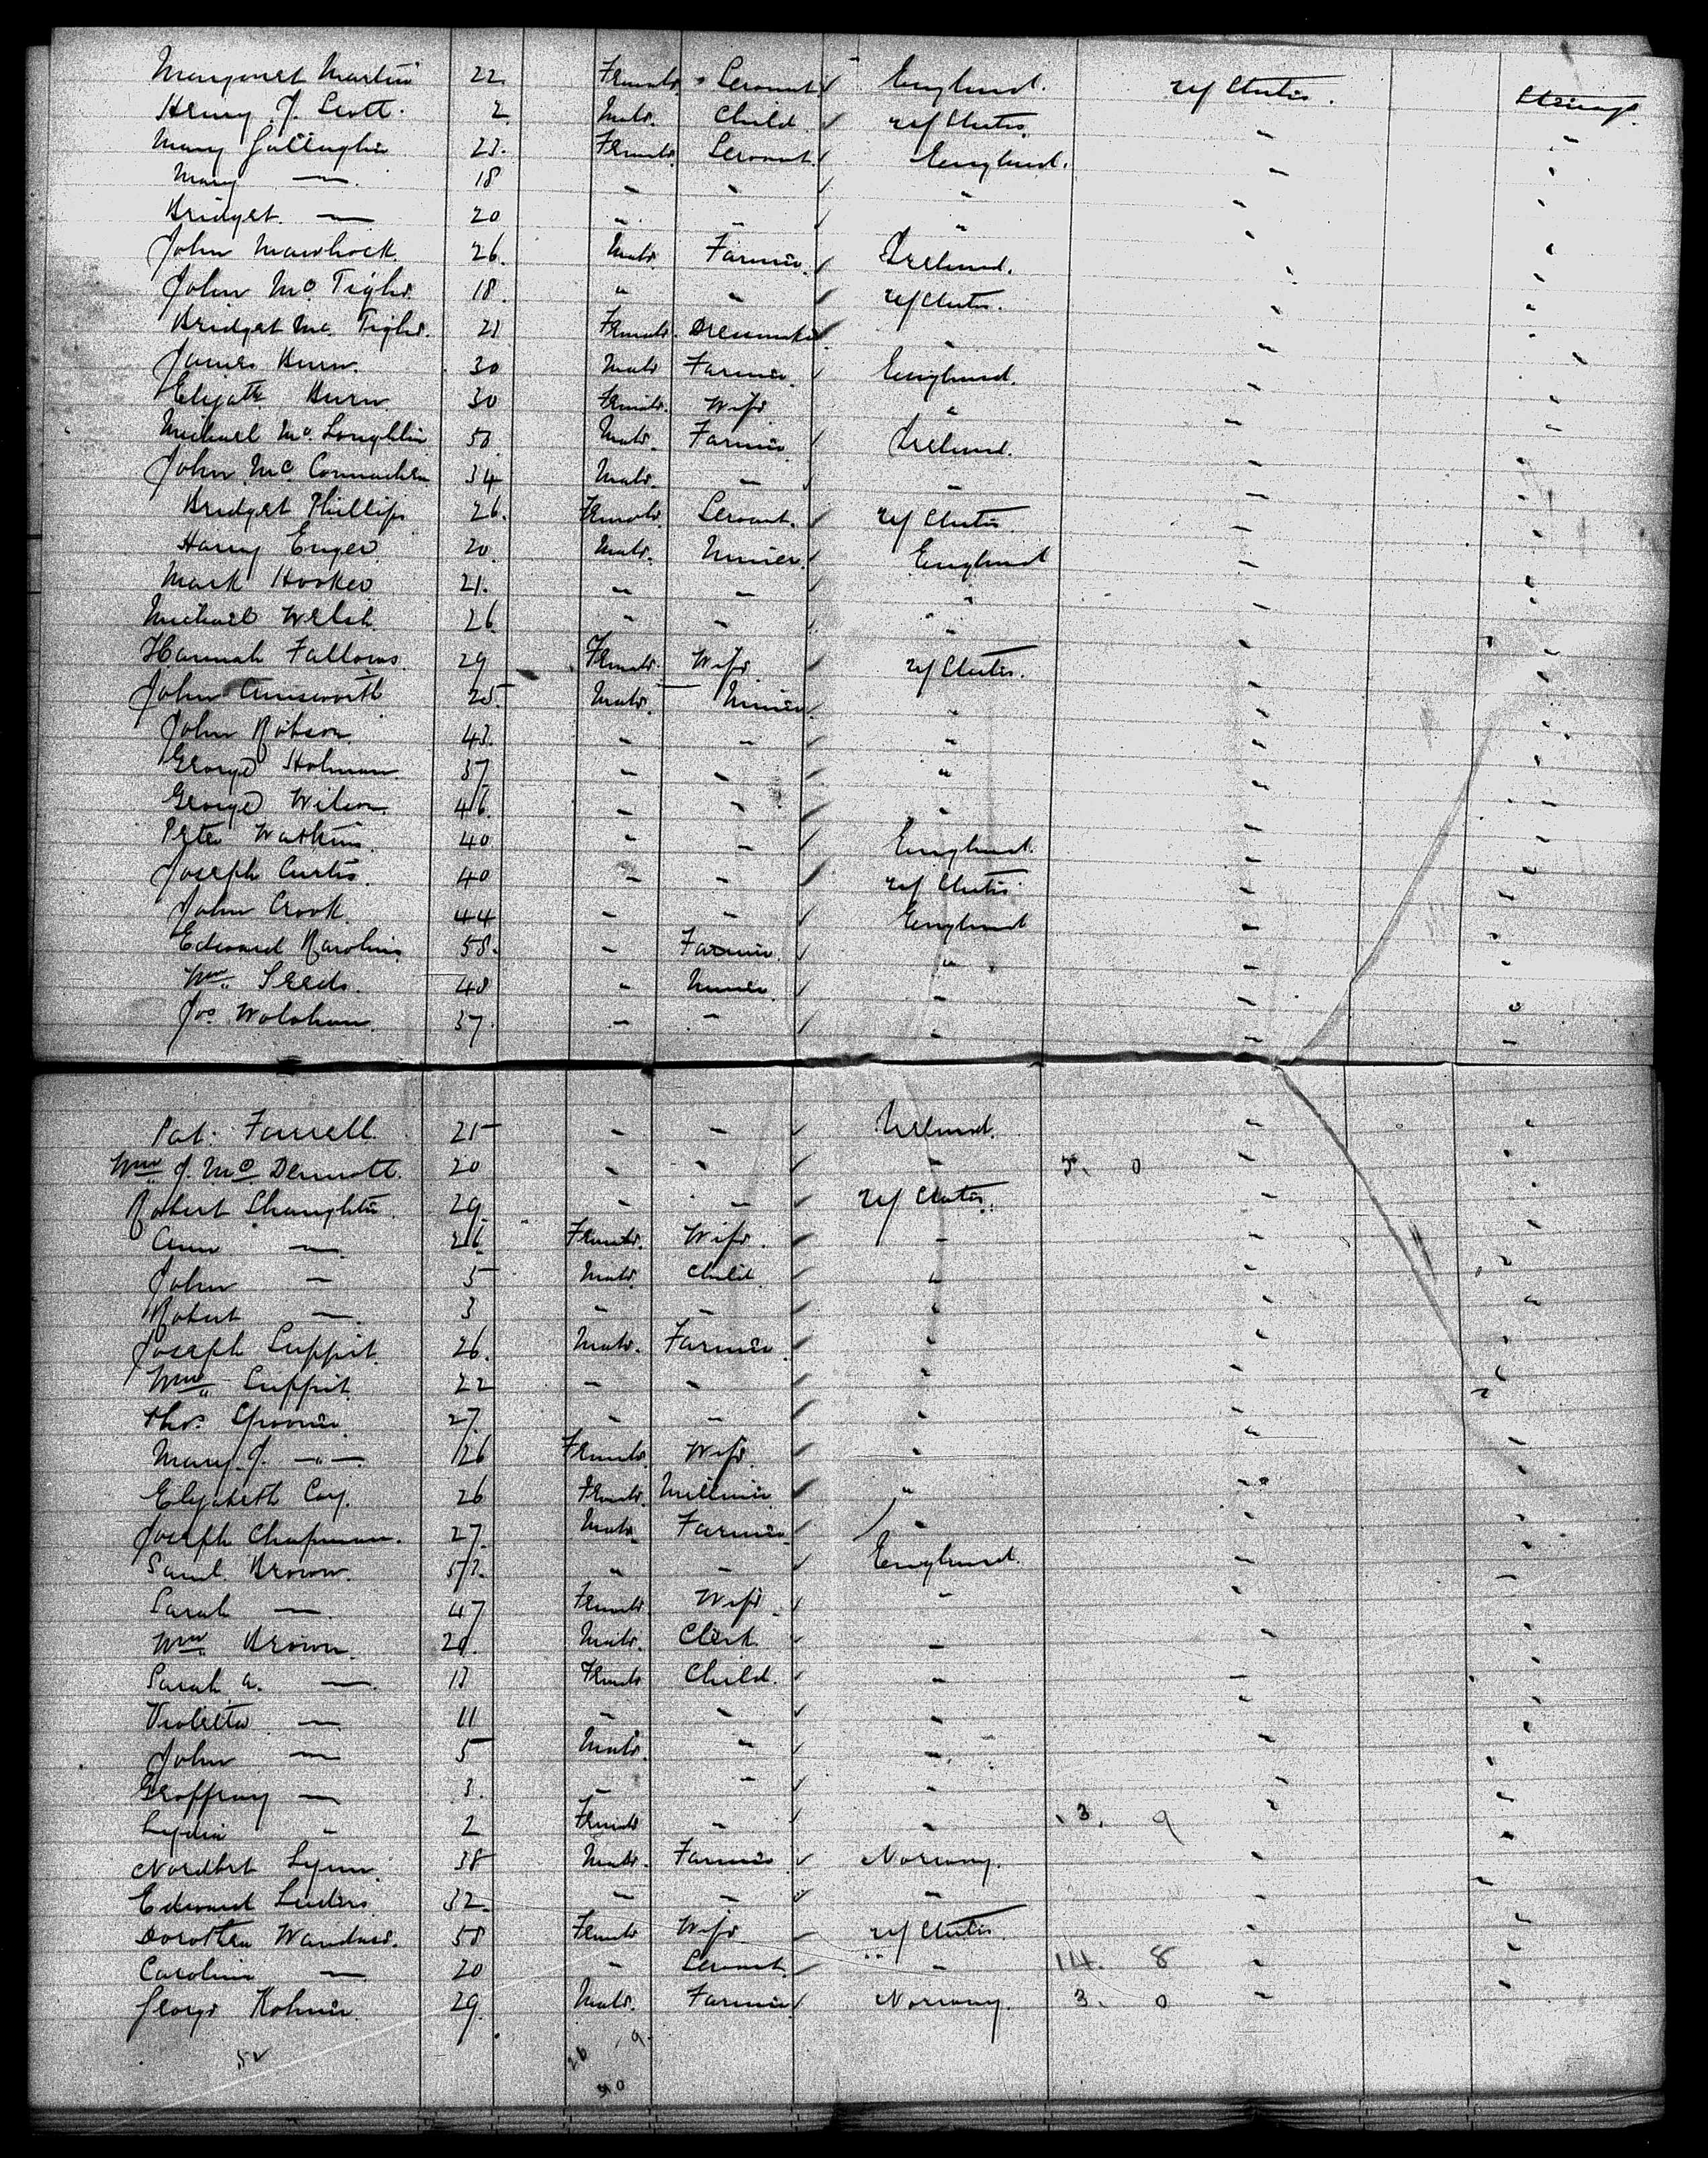 Margaret Martin 22 Female Servant England. U/States. Steerage
Henry J. Scott. 2 Male. Child U/States.
Mary Gallagher 22. Female Servant England.
Mary — 18 " " "
Bridget — 20 " " "
John 26. Male Farmer. Ireland.
John Mc Tighe. 18. " " U/States.
Bridget Mc. Tighe. 21 Female. Dressmaker "
James Burn. 30 Male Farmer. England.
Elizath Burn 30 Female. Wife "
Michael Mc Loughlin 50 Male Farmer Ireland.
John Mc 34 Male. " "
Bridget Phillips 26. Female. Servant. U/States
Harry 20 Male. Miner England
Mark Hooker 21. " " "
Michael Welsh 26 " " "
Hannah Fallows. 29 Female. Wife U/States.
John Ainsworth 25 Male. Miner "
John Robson 43. " " "
George Holman 37 " " "
George Wilson 46. " " "
Peter Watkins. 40 " " England.
Joseph Curtis. 40 " " U/States
John Crook. 44 " " England
Edward 58. " Farmer. "
Wm. Seeds. 48 " Miner. "
Jos. 37. " " "
Pat. Farrell. 25 " " Ireland.
Wm J. Mc Dermott. 20 " " " 5. 0
Robert 29. " " U/States.
Ann — 26 Female. Wife. "
John — 5 Male. Child. "
Robert — 3 " " "
Joseph Suppit. 26. Male. Farmer. "
Wm Suppit. 22 " " "
Thos. 27. " " "
Mary J. — " — 26 Female. Wife. "
Elizabeth Coy. 26 Female. Milliner "
Joseph Chapman. 27. Male Farmer "
Saml. Brown. 52. " " England.
Sarah — 47 Female. Wife "
Wm Brown. 20. Male. Clerk "
Sarah A. — 13 Female Child. "
Violetta — 11 " " "
John — 5 Male. " "
Geoffray — 3. " " "
Lydia " 2 Female " " 3. 9
Lynn 38 Male. Farmer Norway.
Edward 32. " " "
Dorothea 58 Female Wife U/States.
Caroline — 20 " Servant. " 14. 8
George 29. Male. Farmer Norway. 3. 0
52 26 9
40